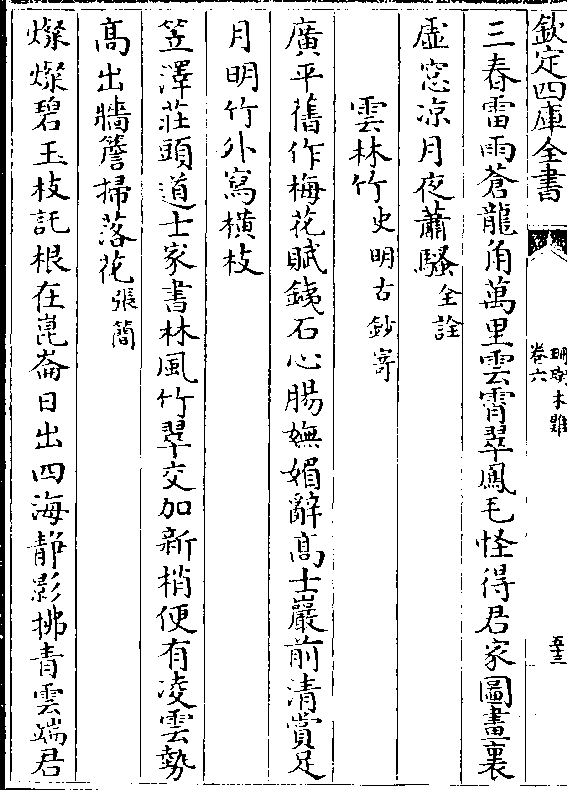 欽定四庫全書
珊瑚木難
卷六
五十三
三春雷雨蒼龍角萬里雲霄翠鳳毛怪得君家圖畫裏
虛窓凉月夜蕭騷全詮
雲林竹史明古鈔寄
廣平舊作梅花賦鐵石心腸嫵媚辭高士巖前清賞足
月明竹外寫橫枝
笠澤莊頭道士家書林風竹翠交加新梢便有凌雲勢
髙出牆簷掃落花張簡
燦燦碧玉枝託根在崑崙日出四海靜影拂青雲端君